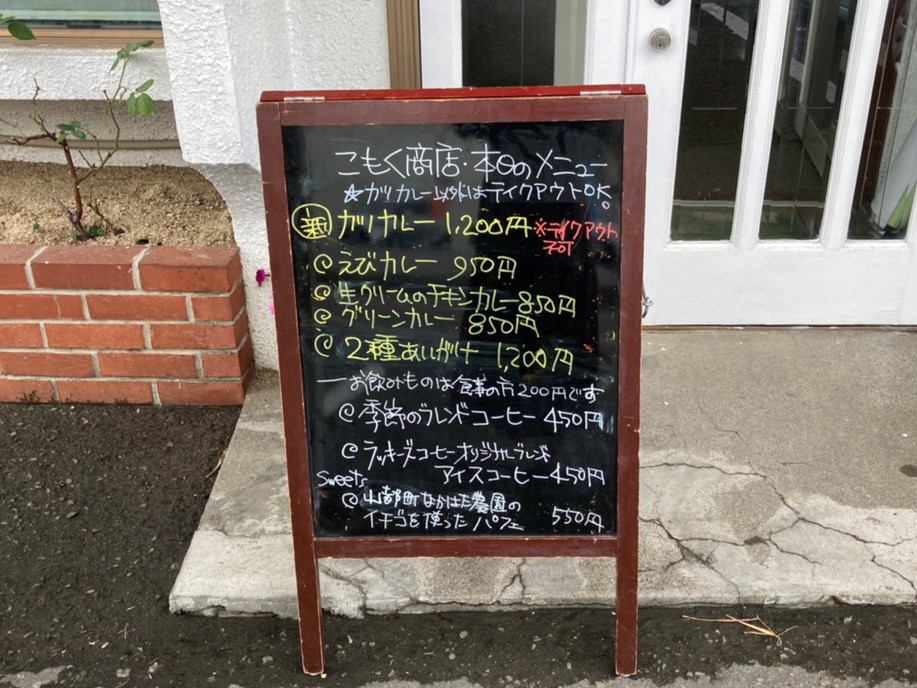 こもく商店・本日のメニュー
☆ガリカレー以外はテイクアウトOK。
新 ガリカレー 1,200円 ※テイクアウト
不可
えびカレー 950円
生クリームのチキンカレー 850円
グリーンカレー 850円
2種あいがけ 1,200円
お飲みものは食事の方200円です
季節のブレンドコーヒー 450円
ラッキーズコーヒーオリジナルブレンド
アイスコーヒー 450円
Sweets
山都町なかはた農園の
イチゴを使ったパフェ 550円